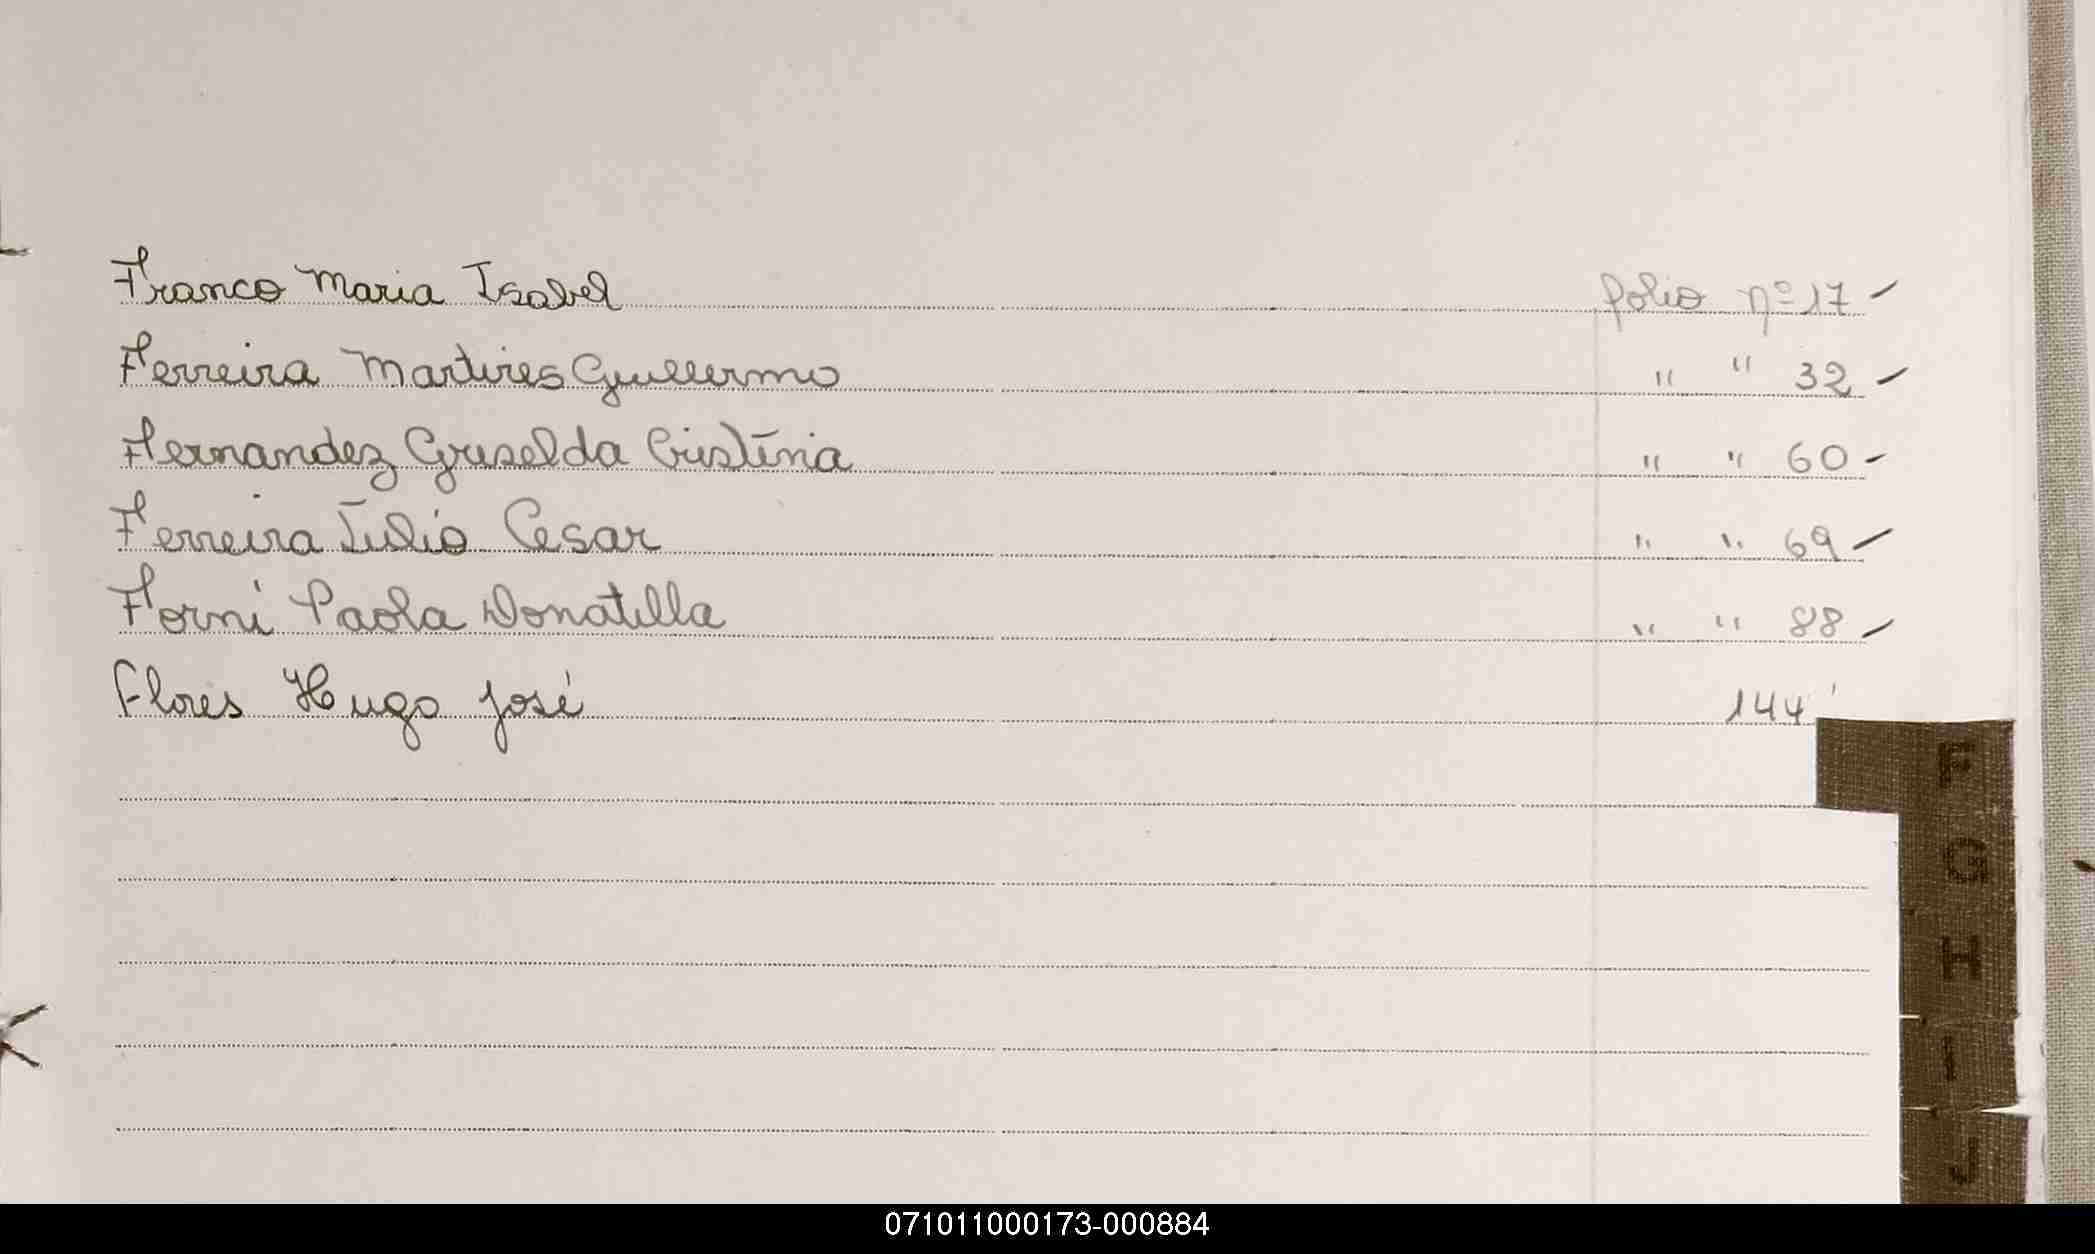 Franco Maria Isabel folio nº 17
Ferreira Martires Guillermo " " 32
Fernandez Griselda Cristina " " 60
Ferreira Julio Cesar " " 69
Forni Paola Donatella " " 88
Flores Hugo José 144
F
G
H
I
J
071011000173-000884